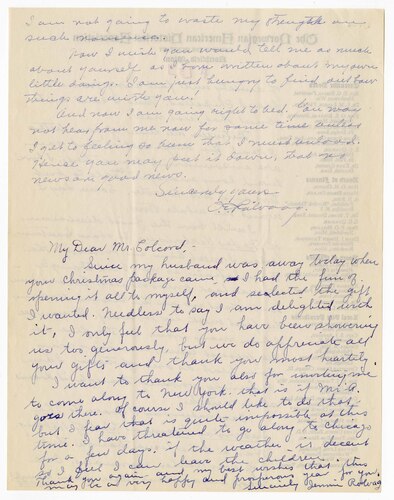 I am not going to waste my thoughts on
such
Now I wish you would tell me as much
about yourself as I have written about my own
little doings. I am just hungry to find out how
things are with you!
And now I am going right to bed. You may
not hear from me now for some time unless
I get to feeling so that I must unload.
Hence you may put it down, that no
news are good news.
Sincerely yours
My Dear Mr. Colcord,-
Since my husband was away today when
your Christmas package came, I had the fun of
opening it all to myself, and selected the gift
I wanted. Needless to say I am delighted with
it, I only feel that you have been showering
us too generously, but we do appreciate all
your gifts and thank you most heartily.
I want to thank you also for inviting me
to come along to New York, that is if Mr. R.
goes there. Of course I should like to do that,
but I fear that is quite impossible at this
time. I have threatened to go along to Chicago
for a few days, if the weather is decent
so I feel I can leave the children.
Thank you again and my best wishes that this
may be a very happy and prosperous year for you.
Sincerely Jennie